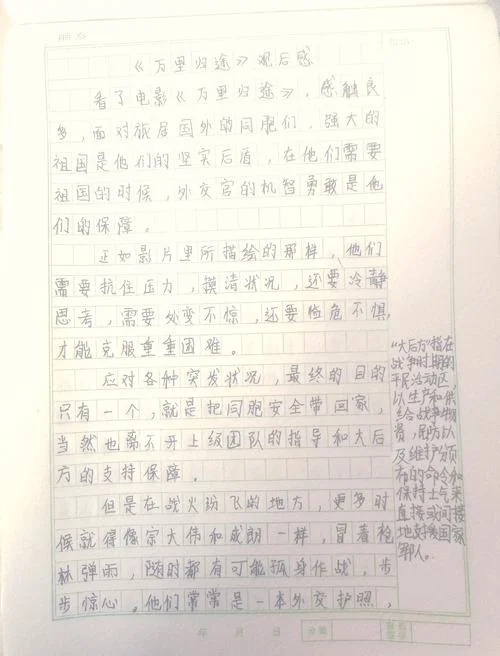 《万里归途》观后感
看了电影《万里归途》，感触良
多，面对旅居国外的同胞们，强大的
祖国是他们的坚实后盾，在他们需要
祖国的时候，外交官的机智勇敢是他
们的保障。
正如影片里所描绘的那样，他们
需要抗住压力，摸清状况，还要冷静
思考，需要处变不惊，还要临危不惧，
才能克服重重困难。
应对各种突发状况，最终的目的
只有一个，就是把同胞安全带回家，
当然也离不开上级团队的指导和大后
方的支持保障。
但是在战火纷飞的地方，更多时
候就得像宗大伟和成朗一样，冒着枪
林弹雨，随时都有可能孤身作战，步
步惊心。他们常常是一本外交护照，
"大后方"指在
战争时期的
平民活动区，
以生产和供
给战争物
资，民防以
及维持产
布的命令和
保持士气来
直接或间接
地支援国家
军人。
年 月 日